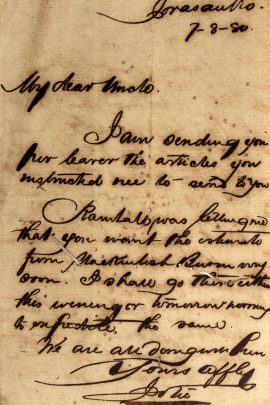 Jorasanko.
7-8-80.
My dear Uncle.
I am sending you
per bearer the articles you
instructed me to send to you
Ramlall was telling me
that you want the estimate
from Mackintosh Burn very
soon. I shall go there either
this evening or tomorrow morning
to expedite the same.
We are all doing well here
Yours affly
Jotie